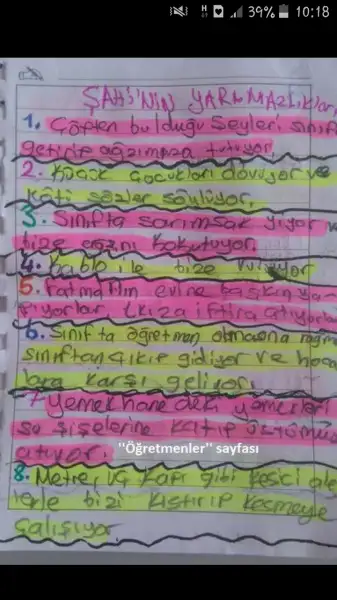 39% 10:18
ŞAHS'NIN YARAMAZLIKları
1. Çöpten bulduğu şeyleri sınıf
getirip ağzımıza tutuyor.
2. Küçük çocukları dövüyor ve
kötü sözler söylüyor.
3. Sınıfta sarımsak yiyor v
bize ağzını kokutuyor.
4. kablo ile bize vuruyor
5. Fatma'nın evine baskın ya-
pıyorlar kıza iftira atıyorlar
6. Sınıf ta öğretmen olmasına rağme
sınıftan çıkıp gidiyor ve hoca
lara karşı geliyor.
7 Yemekhane deki yemekleri
su şişelerine katıp üstümüze
atıyor.
"Öğretmenler" sayfası
8. Metre, uç kapı gibi kesici ale
lerle bizi kıstırıp kesmeye
çalışıyor.